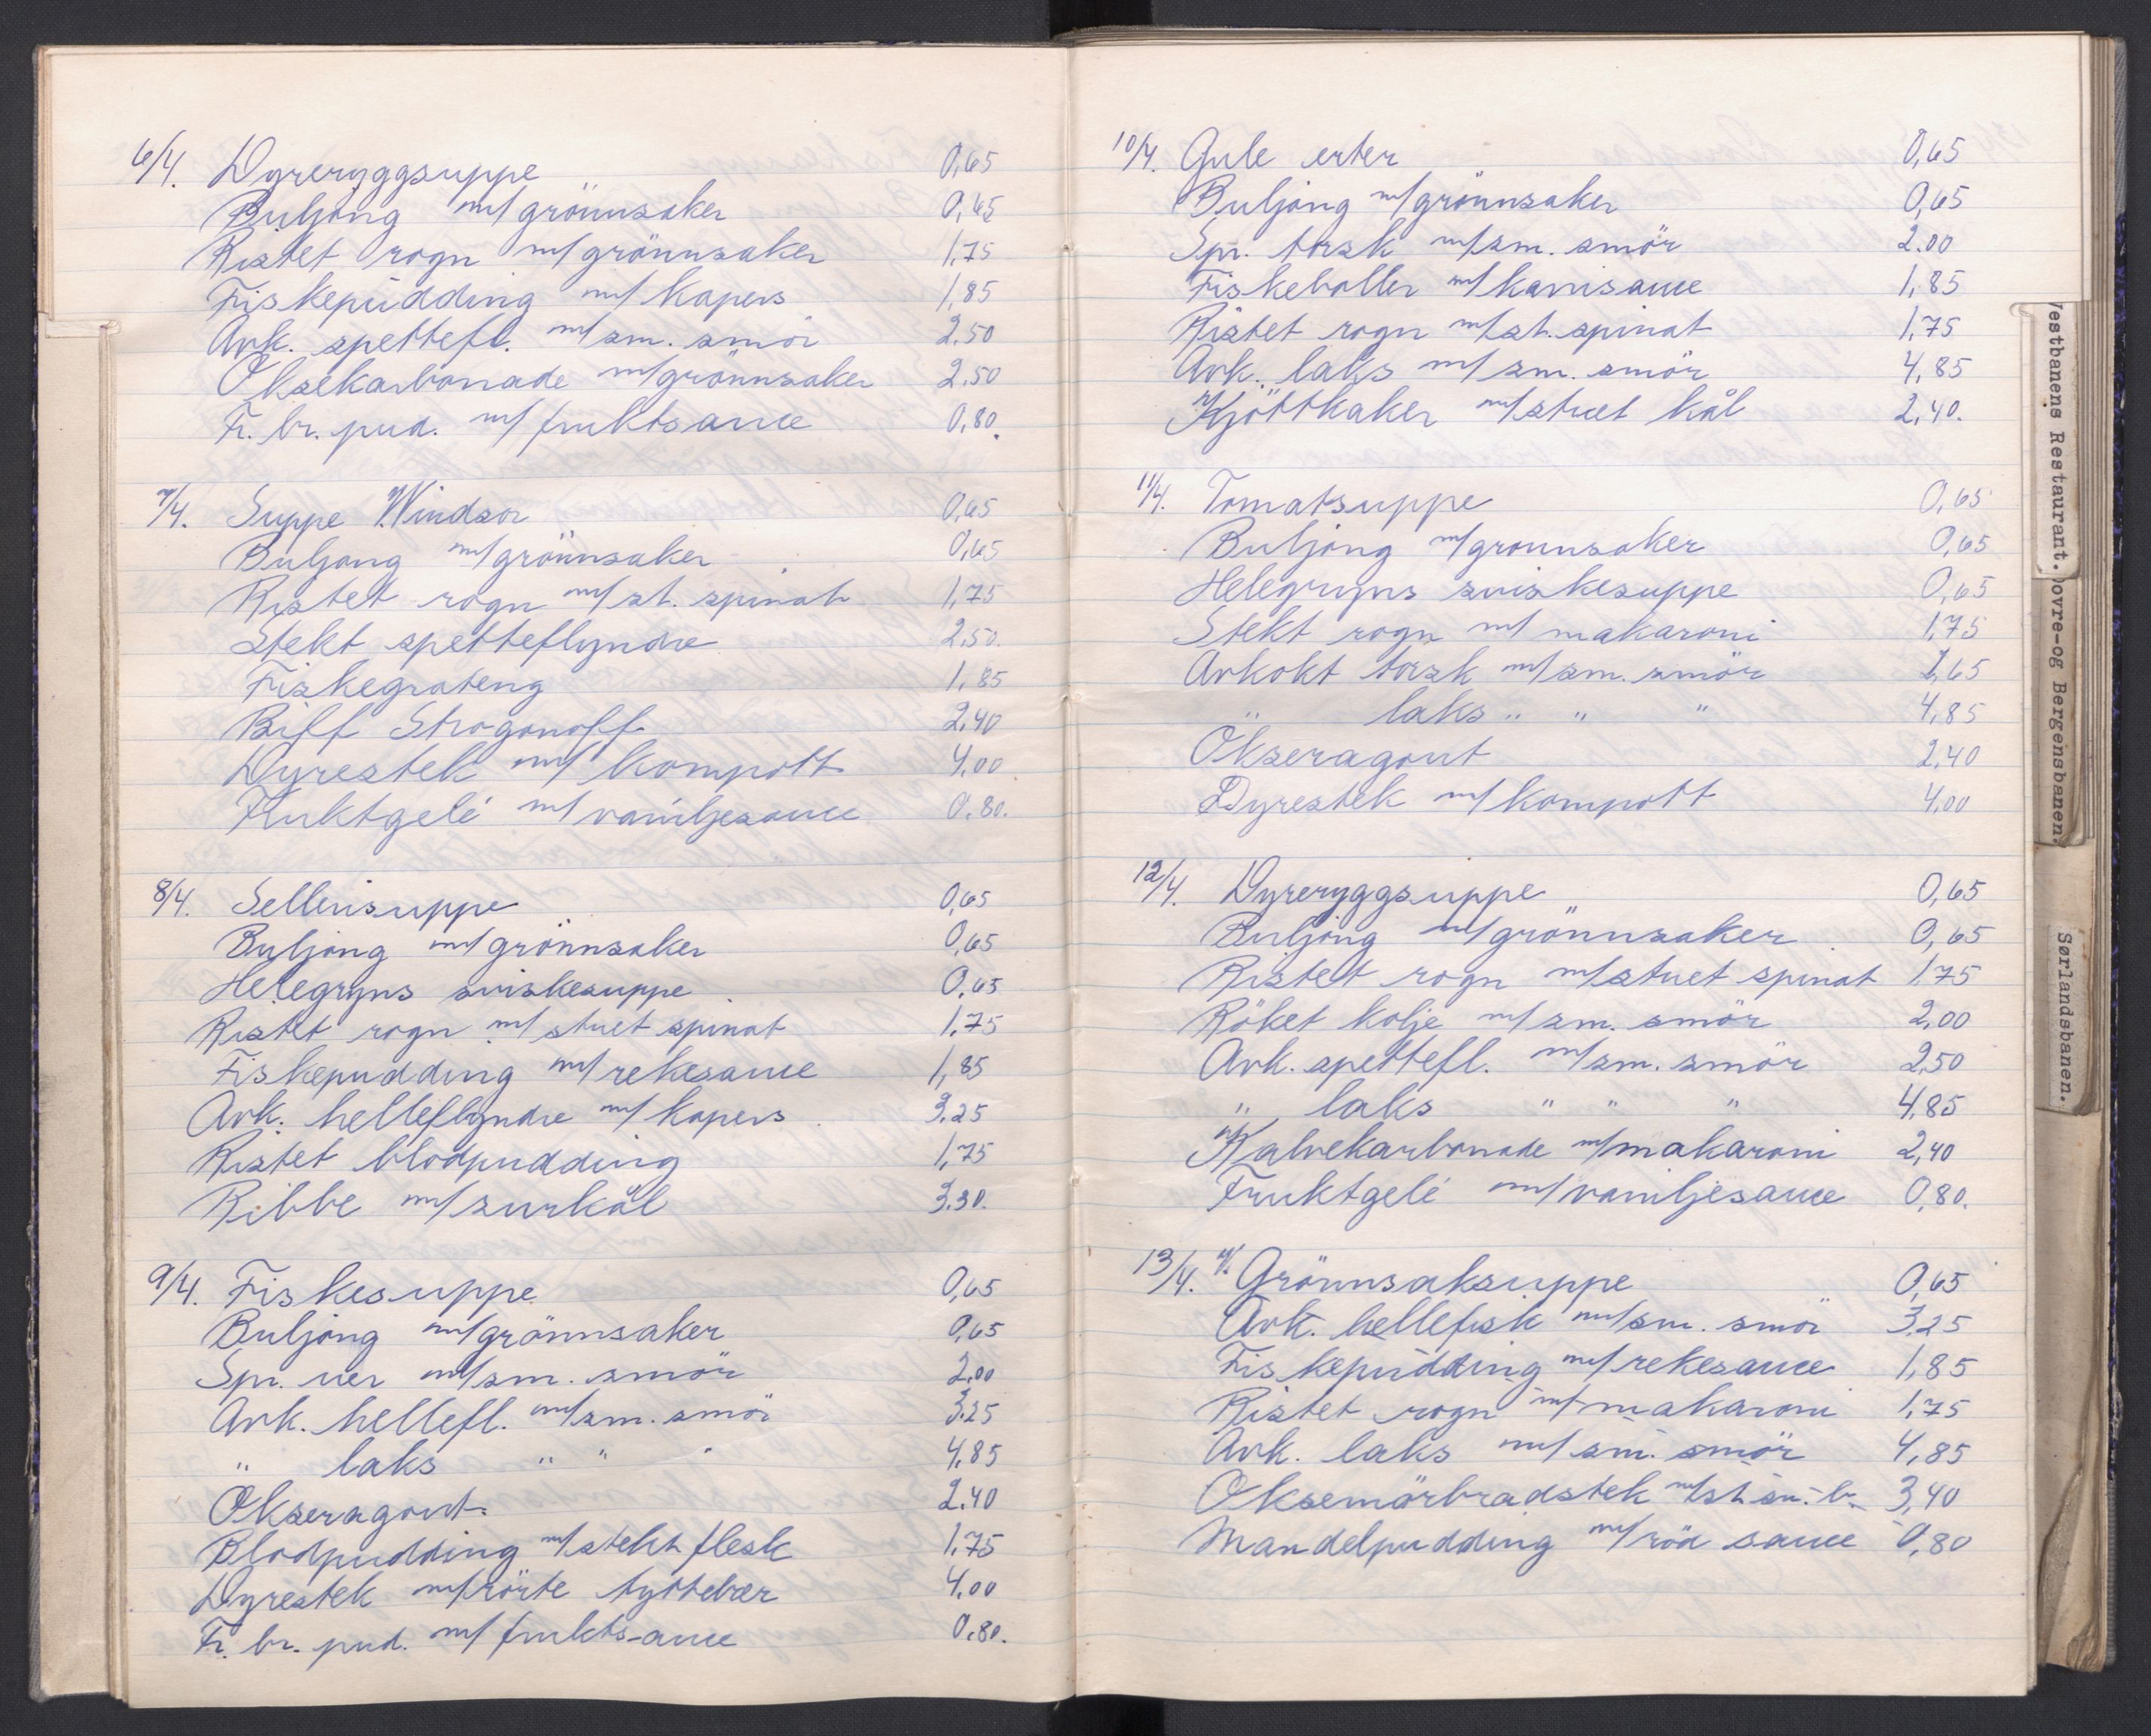 6/4. Dyreryggsuppe 0,65
Buljong m/grönnsaker 0,65
Ristet rogn m/grönnsaker 1,75
Fiskepudding m/ kapers 1,85
Avk. spettefl. m/sm. smör 2.50
Oksekarbonade m/grönnsaker 2.50
Fr. br. pud. m/ fruktsauce 0,80.
7/4. Suppe Windsor 0,65
Buljong m/grönnsaker 0,65
Ristet rogn m/st. spinat 1,75
Stekt spetteflyndre 2,50.
Fiskegrateng 1,85
Biff Strogonoff 2,40
Dyrestek m/ kompott 4,00
Fruktgelé m/ vaniljesauce 0.80.
8/4. Sellerisuppe 0,65
Buljong m/grönnsaker 0,65
Helegryns sviskesuppe 0,65
Ristet rogn m/ stuet spinat 1,75
Fiskepudding m/rekesauce 1,85
Avk. helleflyndre m/ kapers 3.25
Ristet blodpudding 1,75
Ribbe m/surkål 3.30.
9/4. Fiskesuppe 0,65
Buljong m/grönnsaker 0,65
Spr. uer m/sm. smör 2,00
Avk. hellefl. m/sm. smör 3,25
" laks " " " 4,85
Okseragout 2.40
Blodpudding m/stekt flesk 1.75
Dyrestek m/rörte tyttebær 4,00
Fr. br. pud. m/ fruktsauce 0.80.
10/4. Gule erter 0,65
Buljong m/grönnsaker 0,65
Spr. torsk m/sm. smör 2.00
Fiskeboller m/karrisauce 1,85
Ristet rogn m/st. spinat 1,75
Avk. laks m/ sm. smör 4,85
Kjöttkaker m/stuet kål 2,40.
11/4. Tomatsuppe 0,65
Buljong m/grönnsaker 0,65
Helegryns sviskesuppe 0,65
Stekt rogn m/ makaroni 1,75
Avkokt torsk m/sm. smör 2,65
" laks " " " 4,85
Okseragout 2,40
Dyrestek m/kompott 4,00
12/4. Dyreryggsuppe 0,65
Buljong m/grönnsaker 0,65
Ristet rogn m/stuet spinat 1,75
Röket kolje m/sm. smör 2,00
Avk. spettefl. m/sm. smör 2,50
" laks " " " 4,85
Kalvekarbonade m/makaroni 2,40
Fruktgelé m/vaniljesauce 0,80.
13/4. Grönnsaksuppe 0,65
Avk. hellefisk m/sm. smör 3,25
Fiskepudding m/rekesauce 1,85
Ristet rogn m/makaroni 1,75
Avk. laks m/sm. smör 4,85
Oksemörbradstek m/st. sn. br. 3,40
Mandelpudding m/röd sauce 0,80
Vestbanens Restaurant.
Dovre-og Bergensbanen.
Sørlandsbanen.